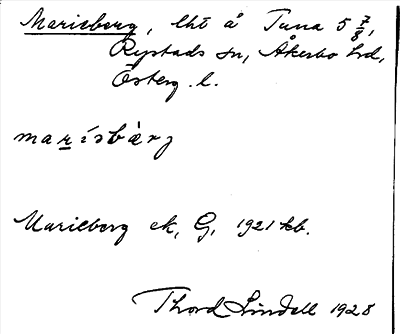 Marieberg, lht å Tuna 5 7/8,
Rystads sn, Åkerbo hd,
Österg. l.
marisbärg
Marieberg ek, G, 1921 kb.
Thord Lindell 1928